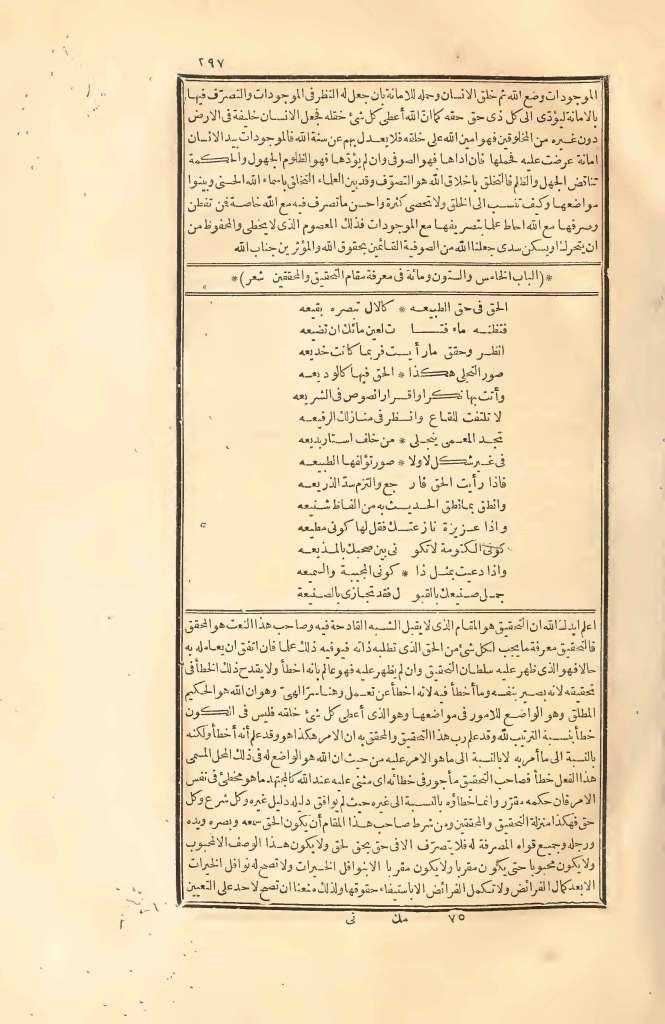 ٢٩٧
الموجودات وضع الله ثم خلق الانسان وحمله للامانة بان جعل له النظر فى الموجودات والتصرف فيها
بالامانة ليؤدى الى كل ذى حق حقه كما انّ الله أعطى كل شئ خلقه فجعل الانسان خليفة فى الارض
دون غيره من المخلوقين فهو امين الله على خلقه فلا يعدل بهم عن سنة الله فالموجودات بيد الانسان
امانة عرضت عليه فحملها فان اداها فهو الصوفى وان لم يؤدّها فهو الظلوم الجهول والحكمة
تناقض الجهل والظلم فالتخلق باخلاق الله هو التصوّف وقد بين العلماء التخلق باسماء الله الحسنى وبينوا
مواضعها وكيف تنسب الى الخلق ولا تحصى كثرة واحسن ما تصرف فيه مع الله خاصة فمن تفطن
وصرفها مع الله احاط علما بتصريفها مع الموجودات فذلك المعصوم الذى لا يخطى والمحفوظ من
ان يتحرك او يسكن سدى جعلنا الله من الصوفية القائمين بحقوق الله والمؤثرين جناب الله
* (الباب الخامس والستون ومائة فى معرفة مقام التحقيق والمحققين شعر) *
الحق فى حق الطبيعه * كالال تبصره بقيعه
فتظنه ماء فتا ت لعين مائك ان تضيعه
انظر وحقق ما رأيت فربما كانت خديعه
صور التجلى هكذا * الحق فيها كالوديعه
وأتت بها نكرا واقرارا نصوص فى الشريعه
لا تلتفت للقاع وانظر فى منازلك الرفيعه
تجد المعمى ينجلى * من خلف استار بديعه
فى غير شكل لا ولا * صور تؤلفها الطبيعه
فاذا رأيت الحق فار جع والتزم سدّ الذريعه
وانطق بما نطق الحديث به من الفاظ شنيعه
واذا عزيزة نازعتك فقل لها كونى مطيعه
كونى الكتومة لا تكو نى بين صحبك بالمذيعه
واذا دعيت بمثل ذا * كونى المجيبة والسميعه
جملى صنيعك بالقبو ل فقد تجازى بالصنيعة
اعلم ايدك الله ان التحقيق هو المقام الذى لا يقبل الشبه القادحة فيه وصاحب هذا النعت هو المحقق
فالتحقيق معرفة ما يجب لكل شئ من الحق الذى تطلبه ذاته فيوفيه ذلك علما فان اتفق ان يعامله به
حالا فهو الذى ظهر عليه سلطان التحقيق وان لم يظهر عليه فهو عالم بانه اخطأ ولا يقدح ذلك الخطأ فى
تحقيقه لانه بصير بنفسه وما أخطأ فيه لانه اخطأ عن تعمل وهنا سرّ الهىّ وهو ان الله هو الحكيم
المطلق وهو الواضع للامور فى مواضعها وهو الذى أعطى كل شئ خلقه فليس فى الكون
خطأ بنسبة الترتيب لله وقد علم رب هذا التحقيق والمحقق به ان الامر هكذا هو وقد علم أنه أخطأ ولكنه
بالنسبة الى ما أمر به لا بالنسبة الى ما هو الامر عليه من حيث ان الله هو الواضع له فى ذلك المحل المسمى
هذا الفعل خطأ فصاحب التحقيق مأجور فى خطائه اى مثنى عليه عند الله كالمجتهد ما هو مخطئ فى نفس
الامر فان حكمه مقرّر وانما خطاؤه بالنسبة الى غيره حيث لم يوافق دليله دليل غيره وكل شرع وكل
حق فهكذا منزلة التحقيق والمحققين ومن شرط صاحب هذا المقام أن يكون الحق سمعه وبصره ويده
ورجله وجميع قواه المصرفة له فلا يتصرّف الا فى حق بحق لحق ولا يكون هذا الوصف الا لمحبوب
ولا يكون محبوبا حتى يكون مقربا ولا يكون مقربا الا بنوافل الخيرات ولا تصح له نوافل الخيرات
الا بعد كمال الفرائض ولا تكمل الفرائض الا باستيفاء حقوقها ولذلك منعنا ان تصح لاحد على التعيين
٧٥ مك نى